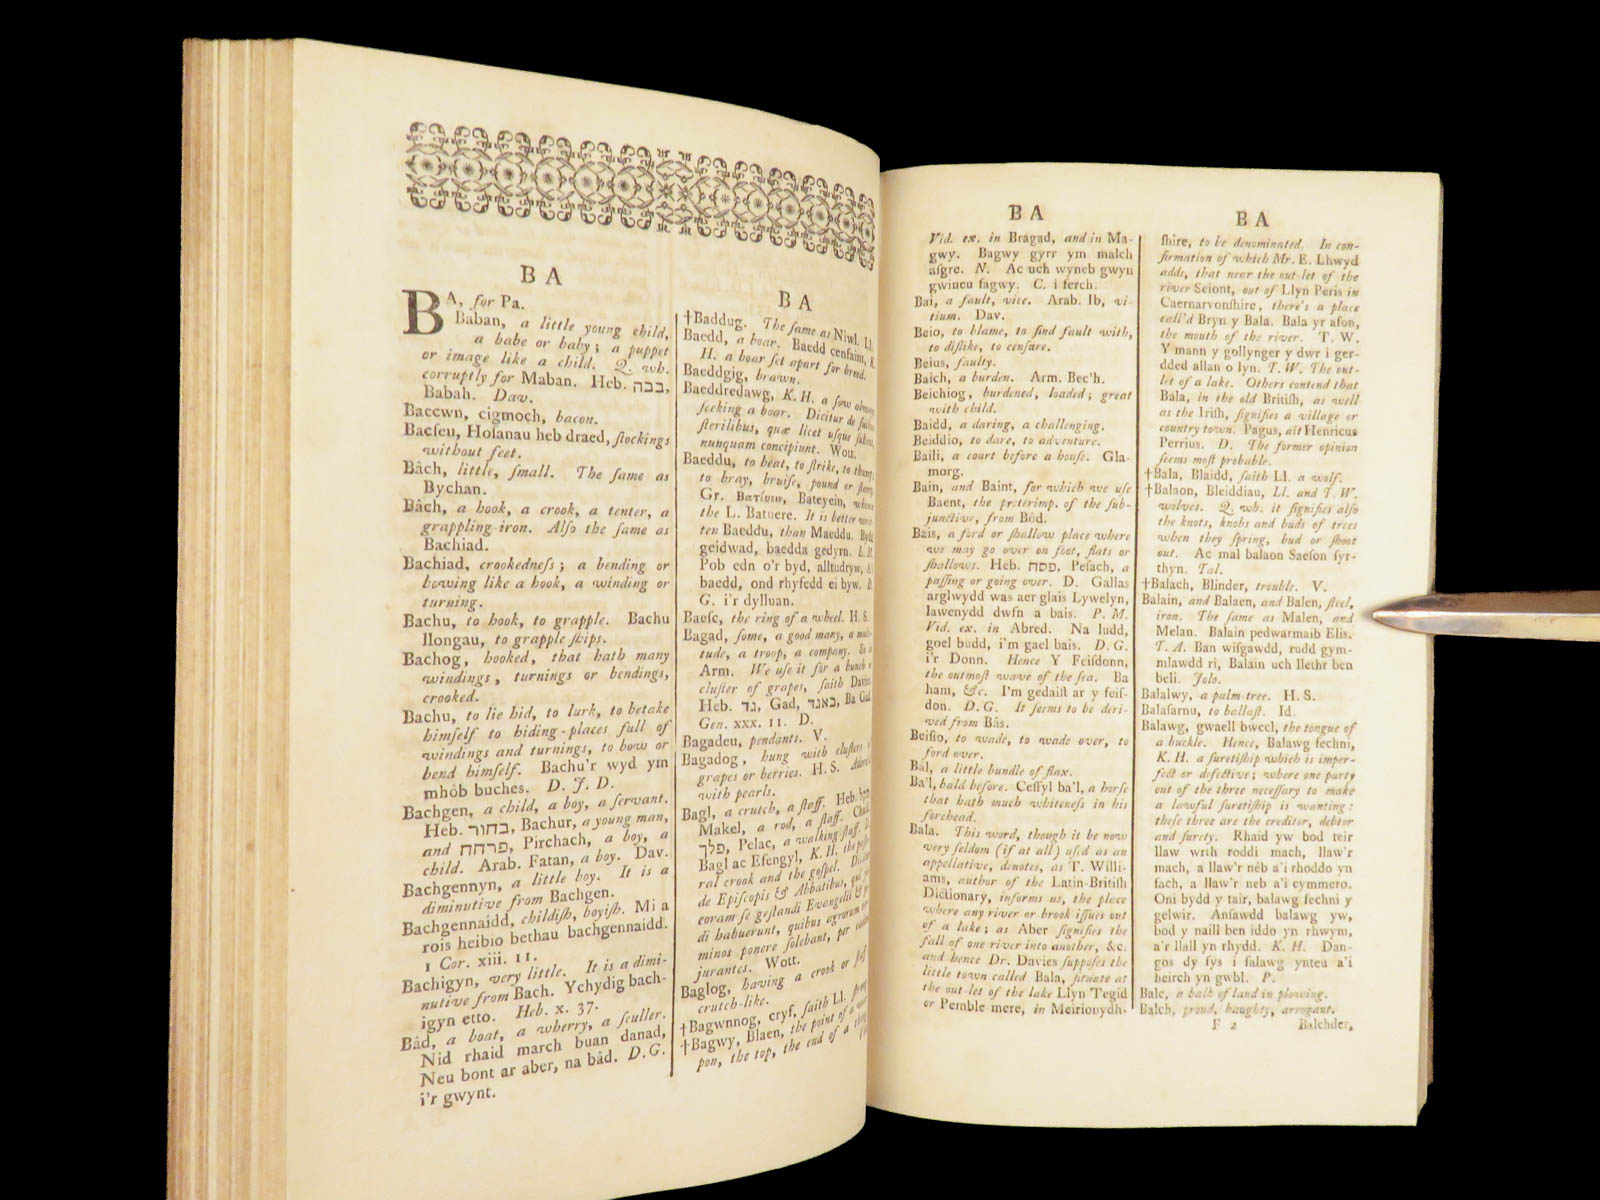 B A
BA, for Pa.
Baban, a little young child,
a babe or baby; a puppet
or image like a child. Q. wh.
corruptly for Maban. Heb. בבה,
Babah. Dav.
Baccwn, cigmoch, bacon.
Bacſeu, Hoſanau heb draed, ſtockings
without feet.
Bâch, little, ſmall. The ſame as
Bychan.
Bâch, a hook, a crook, a tenter, a
grappling-iron. Alſo the ſame as
Bachiad.
Bachiad, crookedneſs; a bending or
bowing like a hook, a winding or
turning.
Bachu, to hook, to grapple. Bachu
llongau, to grapple ſhips.
Bachog, hooked, that hath many
windings, turnings or bendings,
crooked.
Bachu, to lie hid, to lurk, to betake
himſelf to hiding-places full of
windings and turnings, to bow or
bend himſelf. Bachu'r wyd ym
mhôb buches. D. J. D.
Bachgen, a child, a boy, a ſervant.
Heb. בחור, Bachur, a young man,
and פרחח, Pirchach, a boy, a
child. Arab. Fatan, a boy. Dav.
Bachgennyn, a little boy. It is a
diminutive from Bachgen.
Bachgennaidd, childiſh, boyiſh. Mi a
rois heibio bethau bachgennaidd.
1 Cor. xiii. 11.
Bachigyn, very little. It is a dimi-
nutive from Bach. Ychydig bach-
igyn etto. Heb. x. 37.
Bâd, a boat, a wherry, a ſculler.
Nid rhaid march buan danad,
Neu bont ar aber, na bâd. D. G.
i'r gwynt.
B A
†Baddug. The ſame as Niwl. Ll.
Baedd, a boar. Baedd cenfaint, K.
H. a boar ſet apart for breed.
Baeddgig, brawn.
Baeddredawg, K. H. a ſow
ſeeking a boar. Dicitur de
ſterilibus, quæ licet uſque
nunquam concipiunt. Wott.
Baeddu, to beat, to ſtrike, to thump,
to bray, bruiſe, pound or
Gr. Bateyein,
the L. Batuere. It is better
ten Baeddu, than Maeddu.
geidwad, baedda gedyrn.
Pob edn o'r byd, alltudryw,
baedd, ond rhyfedd ei byw. D.
G. i'r dylluan.
Baeſc, the ring of a wheel. H. S.
Bagad, ſome, a good many, a
tude, a troop, a company. So
Arm. We uſe it for a bunch
cluſter of grapes, ſaith Davies
Heb. גד, Gad, באגד, Ba Gad
Gen. xxx. 11. D.
Bagadeu, pendants. V.
Bagadog, hung with cluſters
grapes or berries. H. S.
with pearls.
Bagl, a crutch, a ſtaff. Heb. מקל
Makel, a rod, a ſtaff.
פלך, Pelac, a walking-ſtaff. D.
Bagl ac Efengyl, K. H. the
ral crook and the goſpel.
de Epiſcopis & Abbatibus, qui
coram ſe geſtandi Evangelii &
di habuerunt, quibus agrorum
minos ponere ſolebant, per
jurantes. Wott.
Baglog, having a crook or ſtaff
crutch-like.
†Bagwnnog, cryf, ſaith Ll.
†Bagwy, Blaen, the point of a
pon, the top, the end of a thing
B A
Vid. ex. in Bragad, and in Ma-
gwy. Bagwy gyrr ym malch
aſgre. N. Ac uch wyneb gwyn
gwineu fagwy. C. i ferch.
Bai, a fault, vice. Arab. Ib, vi-
tium. Dav.
Beio, to blame, to find fault with,
to diſlike, to cenſure.
Beius, faulty.
Baich, a burden. Arm. Bec'h.
Beichiog, burdened, loaded; great
with child.
Baidd, a daring, a challenging.
Beiddio, to dare, to adventure.
Baili, a court before a houſe. Gla-
morg.
Bain, and Baint, for which we uſe
Baent, the preterimp. of the ſub-
junctive, from Bôd.
Bais, a ford or ſhallow place where
we may go over on foot, flats or
ſhallows. Heb. פסח, Peſach, a
paſſing or going over. D. Gallas
arglwydd was aer glais Lywelyn,
lawenydd dwfn a bais. P. M.
Vid. ex. in Abred. Na ludd,
goel budd, i'm gael bais. D. G.
i'r Donn. Hence Y Feiſdonn,
the outmoſt wave of the ſea. Ba
ham, &c. I'm gedaiſt ar y feiſ-
don. D. G. It ſeems to be deri-
ved from Bâs.
Beiſio, to wade, to wade over, to
ford over.
Bâl, a little bundle of flax.
Ba'l, bald before. Ceffyl ba'l, a horſe
that hath much whiteneſs in his
forehead.
Bala. This word, though it be now
very ſeldom (if at all) uſed as an
appellative, denotes, as T. Willi-
ams, author of the Latin-Britiſh
Dictionary, informs us, the place
where any river or brook iſſues out
of a lake; as Aber ſignifies the
fall of one river into another, &c.
and hence Dr. Davies ſuppoſes the
little town called Bala, ſituate at
the out-let of the lake Llyn Tegid
or Pemble-mere, in Meirionydh-
B A
ſhire, to be denominated. In con-
firmation of which Mr. E. Lhwyd
adds, that near the out-let of the
river Seiont, out of Llyn Peris in
Caernarvonſhire, there's a place
call'd Bryn y Bala. Bala yr afon,
the mouth of the river. T. W.
Y mann y gollynger y dwr i ger-
dded allan o lyn. T. W. The out-
let of a lake. Others contend that
Bala, in the old Britiſh, as well
as the Iriſh, ſignifies a village or
country town. Pagus, ait Henricus
Perrius. D. The former opinion
ſeems moſt probable.
†Bala, Blaidd, ſaith Ll. a wolf.
†Balaon, Bleiddiau, Ll. and T. W.
wolves. Q. wh. it ſignifies alſo
the knots, knobs and buds of trees
when they ſpring, bud or ſhoot
out. Ac mal balaon Saeſon ſyr-
thyn. Tal.
†Balach, Blinder, trouble. V.
Balain, and Balaen, and Balen, ſteel,
iron. The ſame as Malen, and
Melan. Balain pedwarmaib Elis.
T. A. Ban wiſgawdd, rudd gym-
mlawdd ri, Balain uch llethr ben
beli. Jolo.
Balalwy, a palm-tree. H. S.
Balaſarnu, to ballaſt. Id.
Balawg, gwaell bwccl, the tongue of
a buckle. Hence, Balawg fechni,
K. H. a ſuretiſhip which is imper-
fect or defective; where one party
out of the three neceſſary to make
a lawful ſuretiſhip is wanting:
theſe three are the creditor, debtor
and ſurety. Rhaid yw bod teir
llaw wrth roddi mach, llaw'r
mach, a llaw'r nêb a'i rhoddo yn
fach, a llaw'r neb a'i cymmero.
Oni bydd y tair, balawg fechni y
gelwir. Anſawdd balawg yw,
bod y naill ben iddo yn rhwym,
a'r llall yn rhydd. K. H. Dan-
gos dy ſys i ſalawg ynteu a'i
heirch yn gwbl. P.
Balc, a balk of land in plowing.
Balch, proud, haughty, arrogant.
F 2 Balchder,